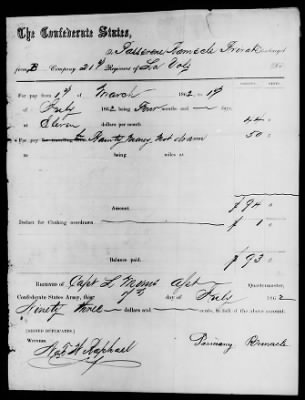 The Confederate States,
To
from B Company 21st Regiment of La Vols
For pay from 1st of March 1862 to 1st
of July 1862 being Four months and days,
at Eleven dollars per month 44 "
For Bounty Money Not drawn 50 "
being miles at
Amount $ 94 "
Deduct for Clothing overdrawn $ 1 "
Balance paid. $ 93 "
Received of Capt L Moore Asst Quartermaster,
Confederate States Army, this day of July 1862
Ninety three dollars and cents, in full of the above account.
[SIGNED DUPLICATES.]
Witness
H Raphael